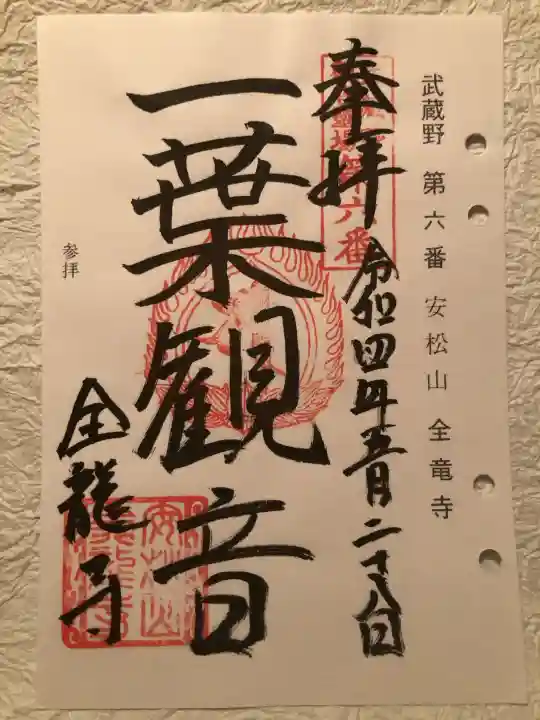 武蔵野 第六番 安松山 全竜寺
第六番
奉拝 令和四年五月二十八日
一葉観音
全龍寺
参拝